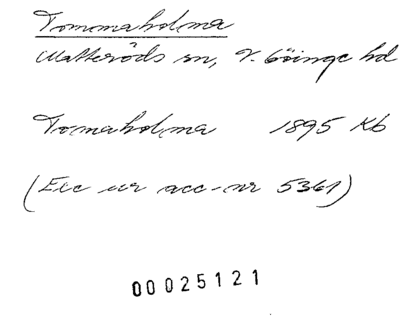 Tommaholma
Matteröds sn, V. Göinge hd
Tomaholma 1895 Kb
(Exc ur acc-nr 5361)
00025121